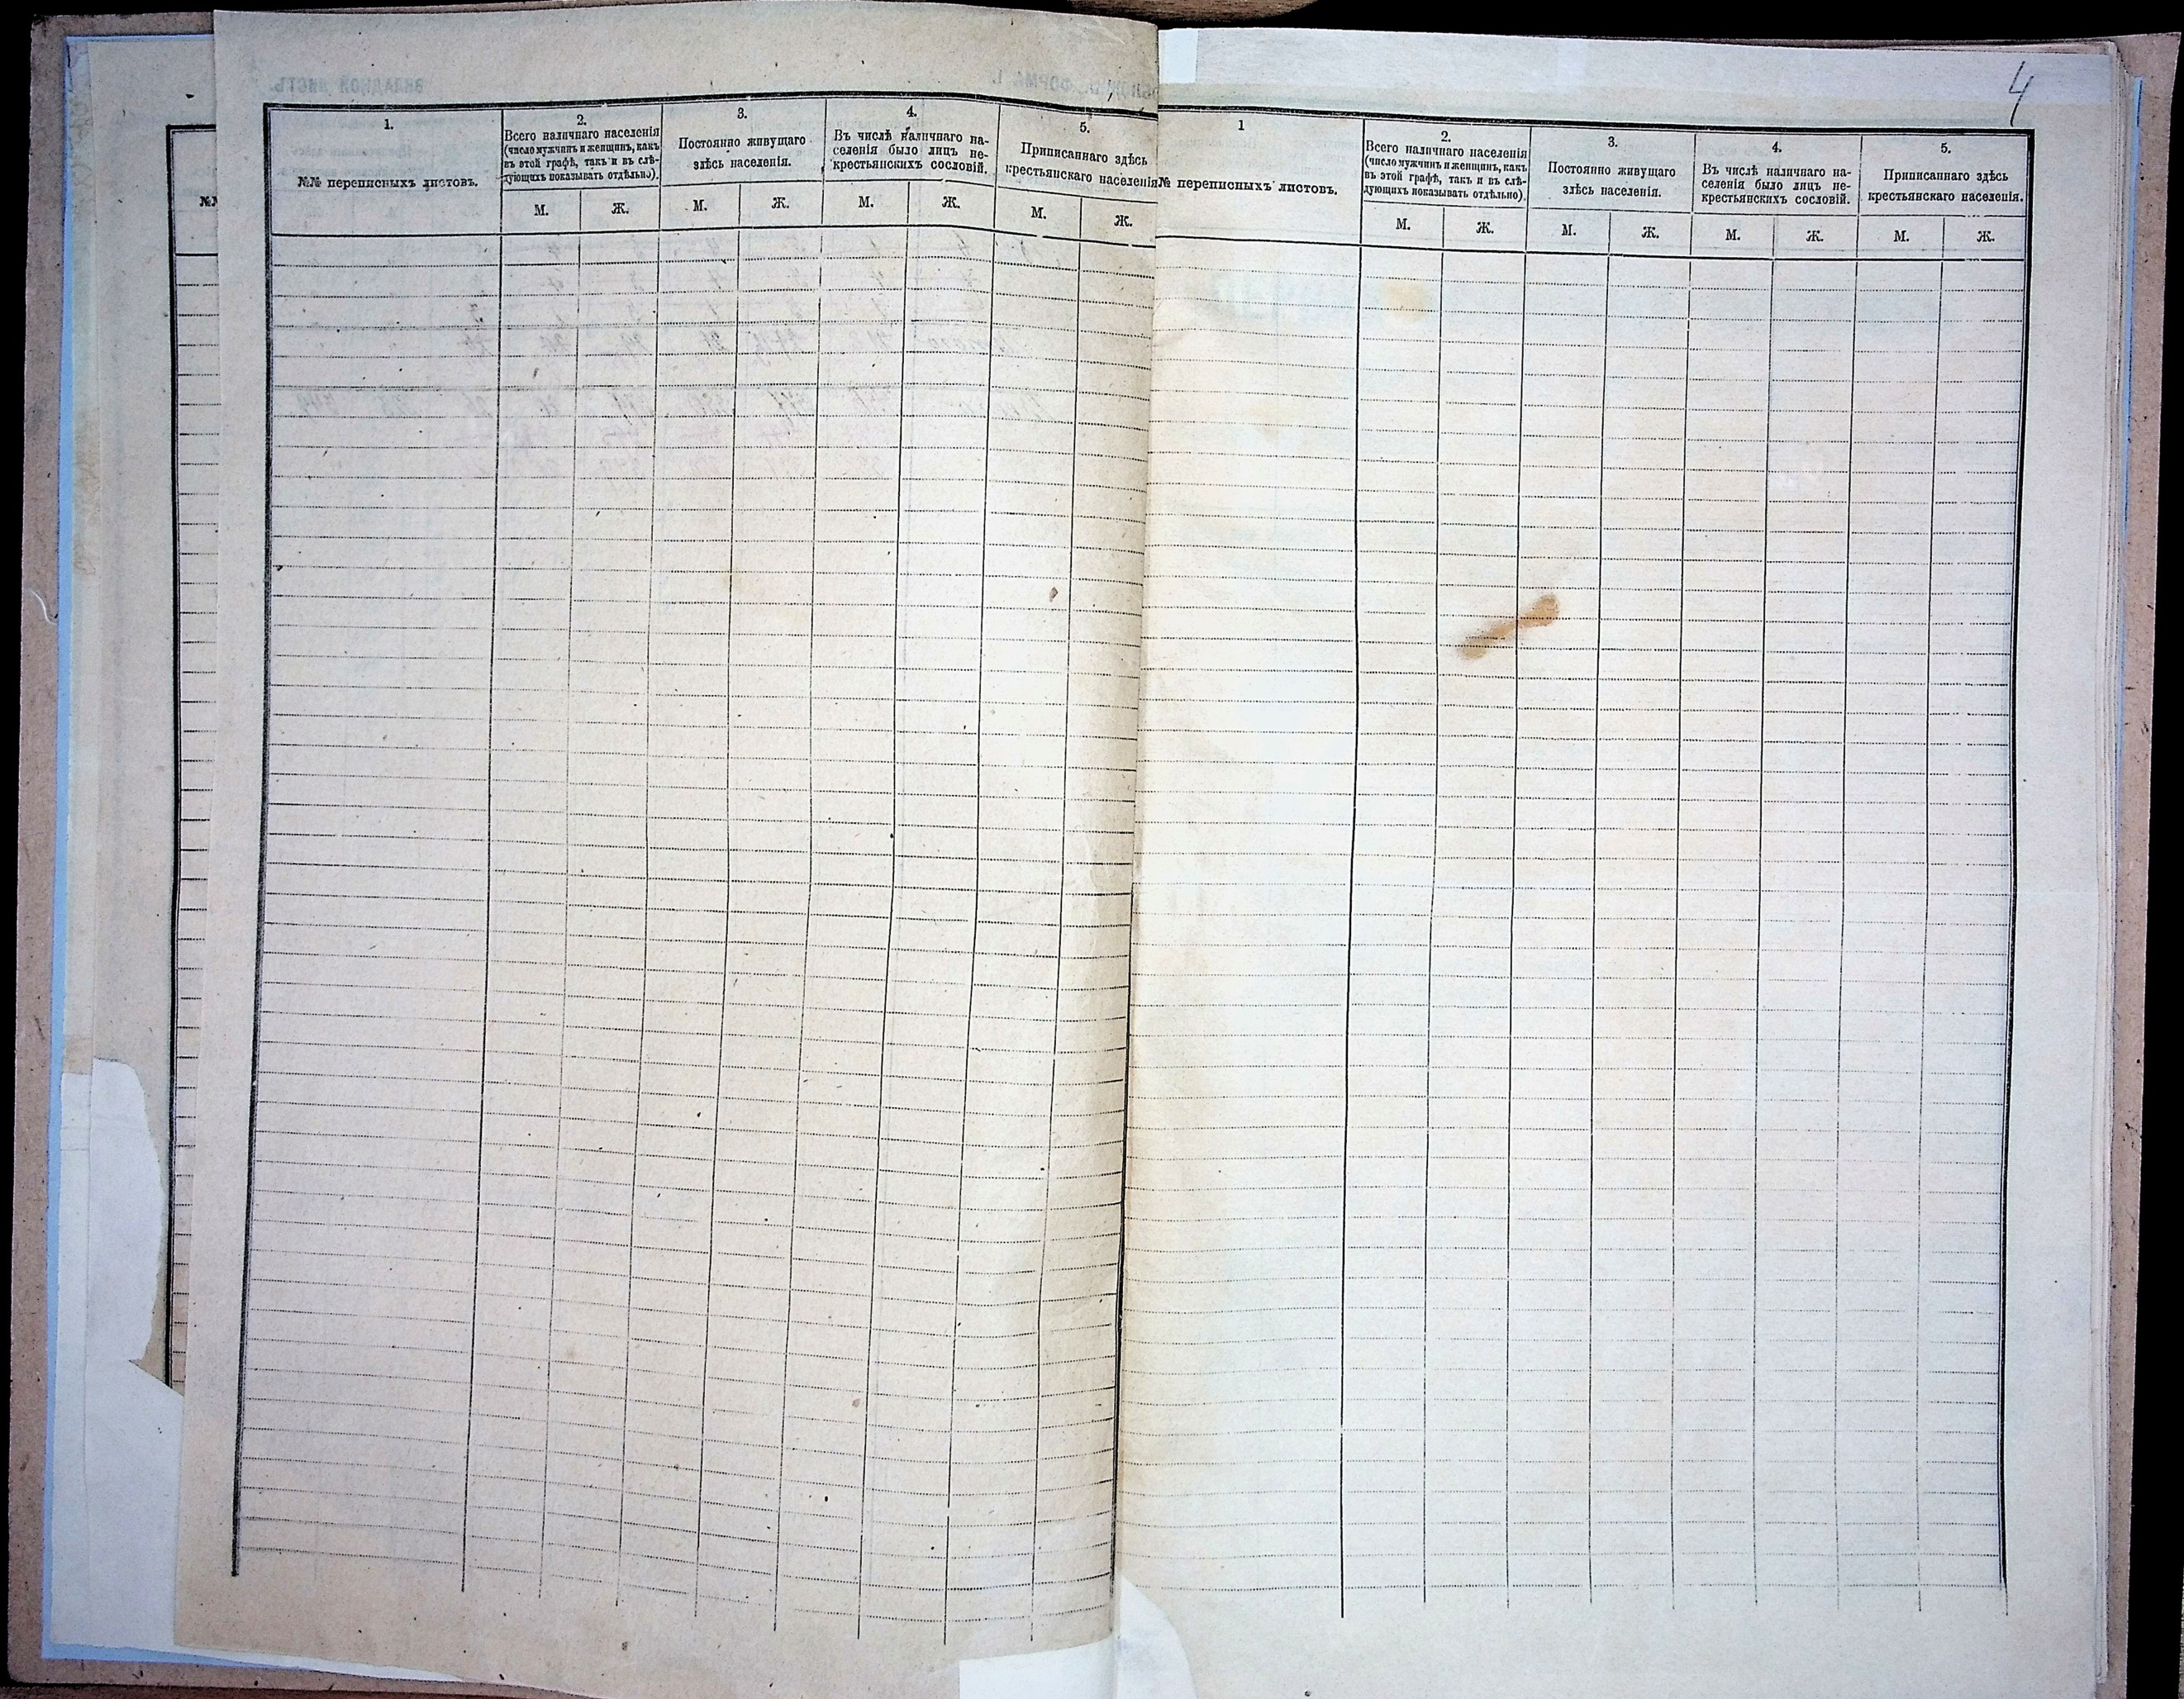 4
1.
№№ переписныхъ листовъ.
2.
Всего наличнаго населенія
(число мужчинъ и женщинъ, какъ
въ этой графѣ, такъ и въ слѣ-
дующихъ показывать отдѣльно).
М. Ж.
3.
Постоянно живущаго
здѣсь населенія.
М. Ж.
4.
Въ числѣ наличнаго на-
селенія было лицъ не-
крестьянскихъ сословій.
М. Ж.
5.
Приписаннаго здѣсь
крестьянскаго населенія
М. Ж.
1
№ переписныхъ листовъ.
2.
Всего наличнаго населенія
(число мужчинъ и женщинъ, какъ
въ этой графѣ, такъ и въ слѣ-
дующихъ показывать отдѣльно).
М. Ж.
3.
Постоянно живущаго
здѣсь населенія.
М. Ж.
4.
Въ числѣ наличнаго на-
селенія было лицъ не-
крестьянскихъ сословій.
М. Ж.
5.
Приписаннаго здѣсь
крестьянскаго населенія.
М. Ж.